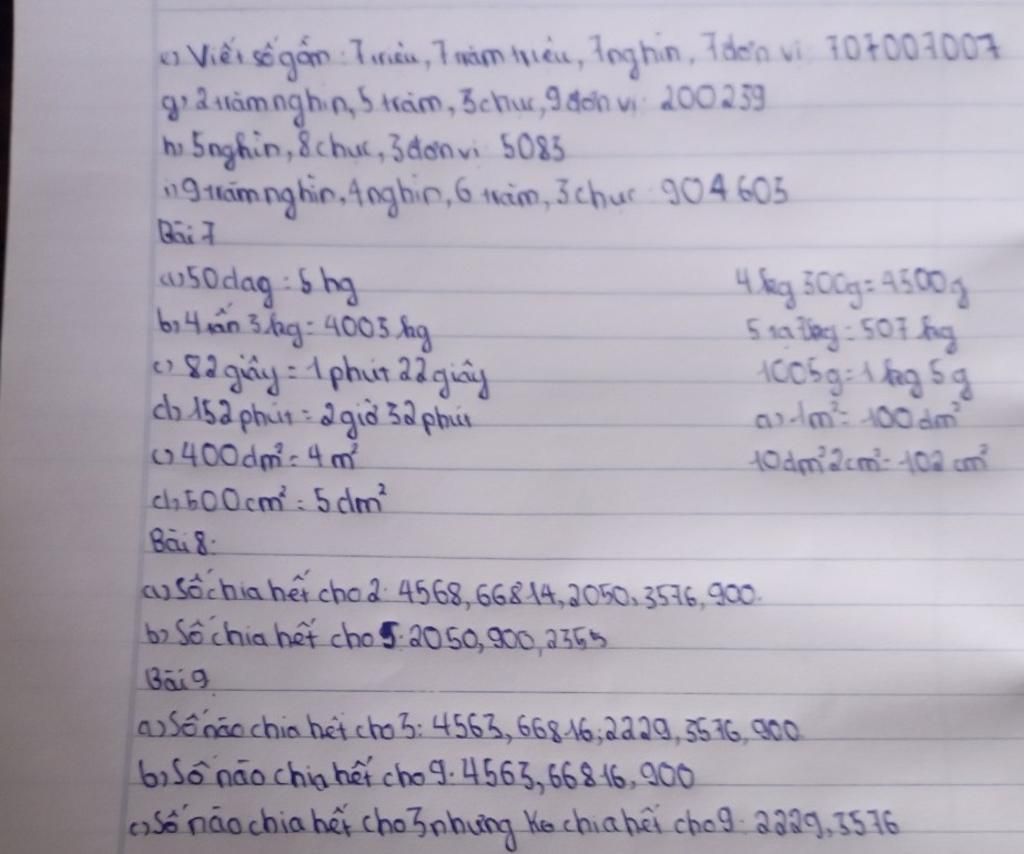 c) Viết số gồm: 7 triệu, 7 trăm triệu, 7 nghìn, 7 đơn vị 707007007
g) 2 trăm nghìn, 5 trăm, 3 chục, 9 đơn vị: 200239
h) 5 nghìn, 8 chục, 3 đơn vị 5083
i) 9 trăm nghìn, 4 nghìn, 6 trăm, 3 chục: 904603
Bài 7
a) 50dag = 5 hg 4 kg 300g = 4300g
b) 4 tấn 3 kg = 4003 kg 5 tạ 7kg = 507 kg
c) 82 giây = 1 phút 22 giây 1005g = 1 kg 5g
d) 152 phút = 2 giờ 32 phút a) 1m² = 100dm²
c) 400dm² = 4m² 10dm² 2cm² = 102 cm²
d) 500cm² = 5dm²
Bài 8:
a) Số chia hết cho 2: 4568, 66814, 2050, 3576, 900.
b) Số chia hết cho 5: 2050, 900, 2355
Bài 9
a) Số nào chia hết cho 3: 4563, 66816; 2229, 3576, 900
b) Số nào chia hết cho 9: 4563, 66816, 900
c) Số nào chia hết cho 3 nhưng ko chia hết cho 9: 2229, 3576